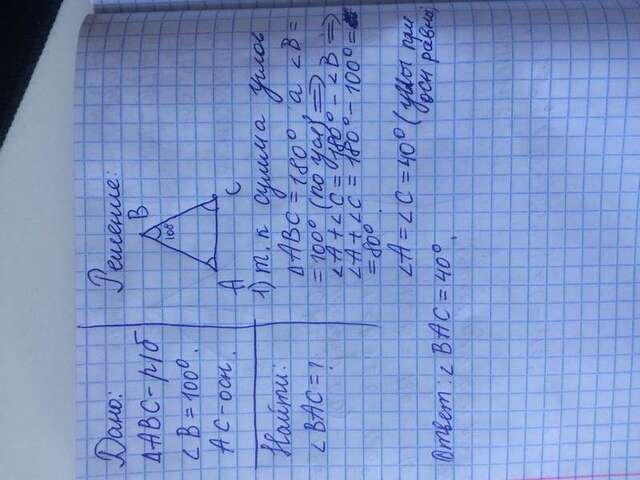 Дано:
ΔABC - р/б
∠B = 100°.
AC - осн.
Найти:
∠BAC = ?
Решение:
B
100°
A
C
1) т.к сумма углов
ΔABC = 180°, а ∠B =
= 100° (по усл) ⇒
∠A + ∠C = 180° - ∠B ⇒
∠A + ∠C = 180° - 100° =
= 80°.
∠A = ∠C = 40° (углы при
осн равны,
Ответ: ∠BAC = 40°.